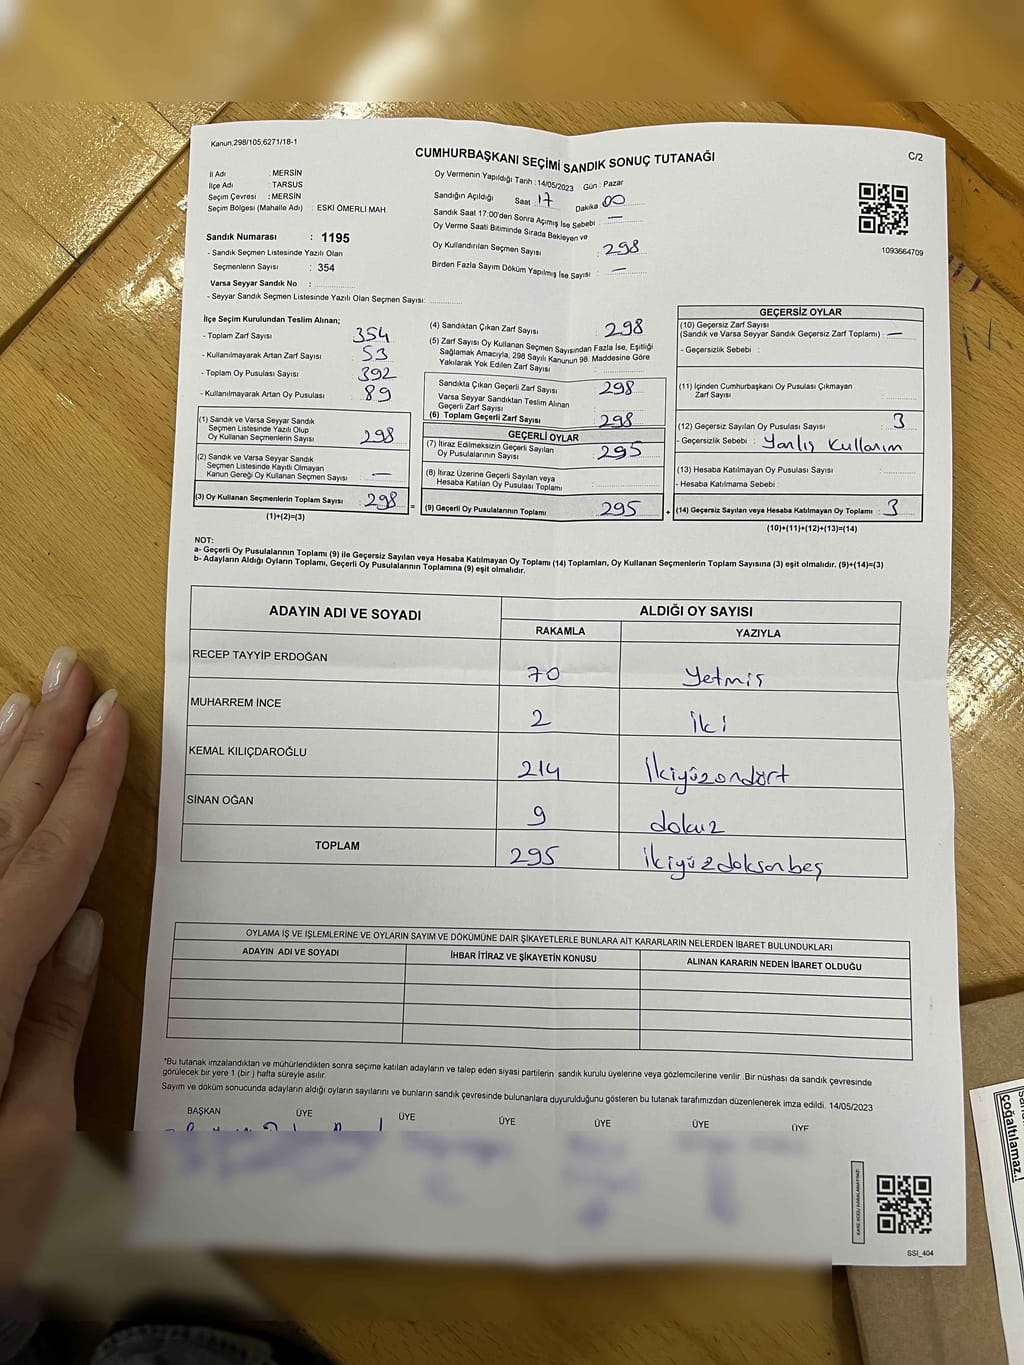 Kanun;298/105;6271/18-1
CUMHURBAŞKANI SEÇİMİ SANDIK SONUÇ TUTANAĞI
C/2
İl Adı : MERSİN
İlçe Adı : TARSUS
Seçim Çevresi : MERSİN
Seçim Bölgesi (Mahalle Adı) : ESKİ ÖMERLİ MAH.
Sandık Numarası : 1195
- Sandık Seçmen Listesinde Yazılı Olan
Seçmenlerin Sayısı : 354
Varsa Seyyar Sandık No :
- Seyyar Sandık Seçmen Listesinde Yazılı Olan Seçmen Sayısı:
Oy Vermenin Yapıldığı Tarih : 14/05/2023 Gün : Pazar
Sandığın Açıldığı Saat : 17 Dakika : 00
Sandık Saat 17:00'den Sonra Açılmış İse Sebebi : —
Oy Verme Saati Bitiminde Sırada Bekleyen ve
Oy Kullandırılan Seçmen Sayısı : 298
Birden Fazla Sayım Döküm Yapılmış İse Sayısı : —
1093664709
İlçe Seçim Kurulundan Teslim Alınan;
- Toplam Zarf Sayısı 354
- Kullanılmayarak Artan Zarf Sayısı : 53
- Toplam Oy Pusulası Sayısı : 392
- Kullanılmayarak Artan Oy Pusulası : 89
(1) Sandık ve Varsa Seyyar Sandık
Seçmen Listesinde Yazılı Olup
Oy Kullanan Seçmenlerin Sayısı : 298
(2) Sandık ve Varsa Seyyar Sandık
Seçmen Listesinde Kayıtlı Olmayan
Kanun Gereği Oy Kullanan Seçmen Sayısı : —
(3) Oy Kullanan Seçmenlerin Toplam Sayısı : 298
(1)+(2)=(3)
(4) Sandıktan Çıkan Zarf Sayısı : 298
(5) Zarf Sayısı Oy Kullanan Seçmen Sayısından Fazla İse, Eşitliği
Sağlamak Amacıyla, 298 Sayılı Kanunun 98. Maddesine Göre
Yakılarak Yok Edilen Zarf Sayısı :
Sandıkta Çıkan Geçerli Zarf Sayısı : 298
Varsa Seyyar Sandıktan Teslim Alınan
Geçerli Zarf Sayısı :
(6) Toplam Geçerli Zarf Sayısı : 298
GEÇERLİ OYLAR
(7) İtiraz Edilmeksizin Geçerli Sayılan
Oy Pusulalarının Sayısı : 295
(8) İtiraz Üzerine Geçerli Sayılan veya
Hesaba Katılan Oy Pusulası Toplamı :
= (9) Geçerli Oy Pusulalarının Toplamı : 295
GEÇERSİZ OYLAR
(10) Geçersiz Zarf Sayısı
(Sandık ve Varsa Seyyar Sandık Geçersiz Zarf Toplamı) : —
- Geçersizlik Sebebi :
(11) İçinden Cumhurbaşkanı Oy Pusulası Çıkmayan
Zarf Sayısı :
(12) Geçersiz Sayılan Oy Pusulası Sayısı : 3
- Geçersizlik Sebebi : Yanlış Kullanım
(13) Hesaba Katılmayan Oy Pusulası Sayısı :
- Hesaba Katılmama Sebebi :
+ (14) Geçersiz Sayılan veya Hesaba Katılmayan Oy Toplamı : 3
(10)+(11)+(12)+(13)=(14)
NOT:
a- Geçerli Oy Pusulalarının Toplamı (9) ile Geçersiz Sayılan veya Hesaba Katılmayan Oy Toplamı (14) Toplamları, Oy Kullanan Seçmenlerin Toplam Sayısına (3) eşit olmalıdır. (9)+(14)=(3)
b- Adayların Aldığı Oyların Toplamı, Geçerli Oy Pusulalarının Toplamına (9) eşit olmalıdır.
ADAYIN ADI VE SOYADI ALDIĞI OY SAYISI
RAKAMLA YAZIYLA
RECEP TAYYİP ERDOĞAN 70 yetmiş
MUHARREM İNCE 2 iki
KEMAL KILIÇDAROĞLU 214 ikiyüzondört
SİNAN OĞAN 9 dokuz
TOPLAM 295 ikiyüzdoksanbeş
OYLAMA İŞ VE İŞLEMLERİNE VE OYLARIN SAYIM VE DÖKÜMÜNE DAİR ŞİKAYETLERLE BUNLARA AİT KARARLARIN NELERDEN İBARET BULUNDUKLARI
ADAYIN ADI VE SOYADI İHBAR İTİRAZ VE ŞİKAYETİN KONUSU ALINAN KARARIN NEDEN İBARET OLDUĞU
*Bu tutanak imzalandıktan ve mühürlendikten sonra seçime katılan adayların ve talep eden siyasi partilerin sandık kurulu üyelerine veya gözlemcilerine verilir .Bir nüshası da sandık çevresinde
görülecek bir yere 1 (bir ) hafta süreyle asılır.
Sayım ve döküm sonucunda adayların aldığı oyların sayılarını ve bunların sandık çevresinde bulunanlara duyurulduğunu gösteren bu tutanak tarafımızdan düzenlenerek imza edildi. 14/05/2023
BAŞKAN ÜYE ÜYE ÜYE ÜYE ÜYE ÜYE
SSİ_404
çoğaltılamaz.!